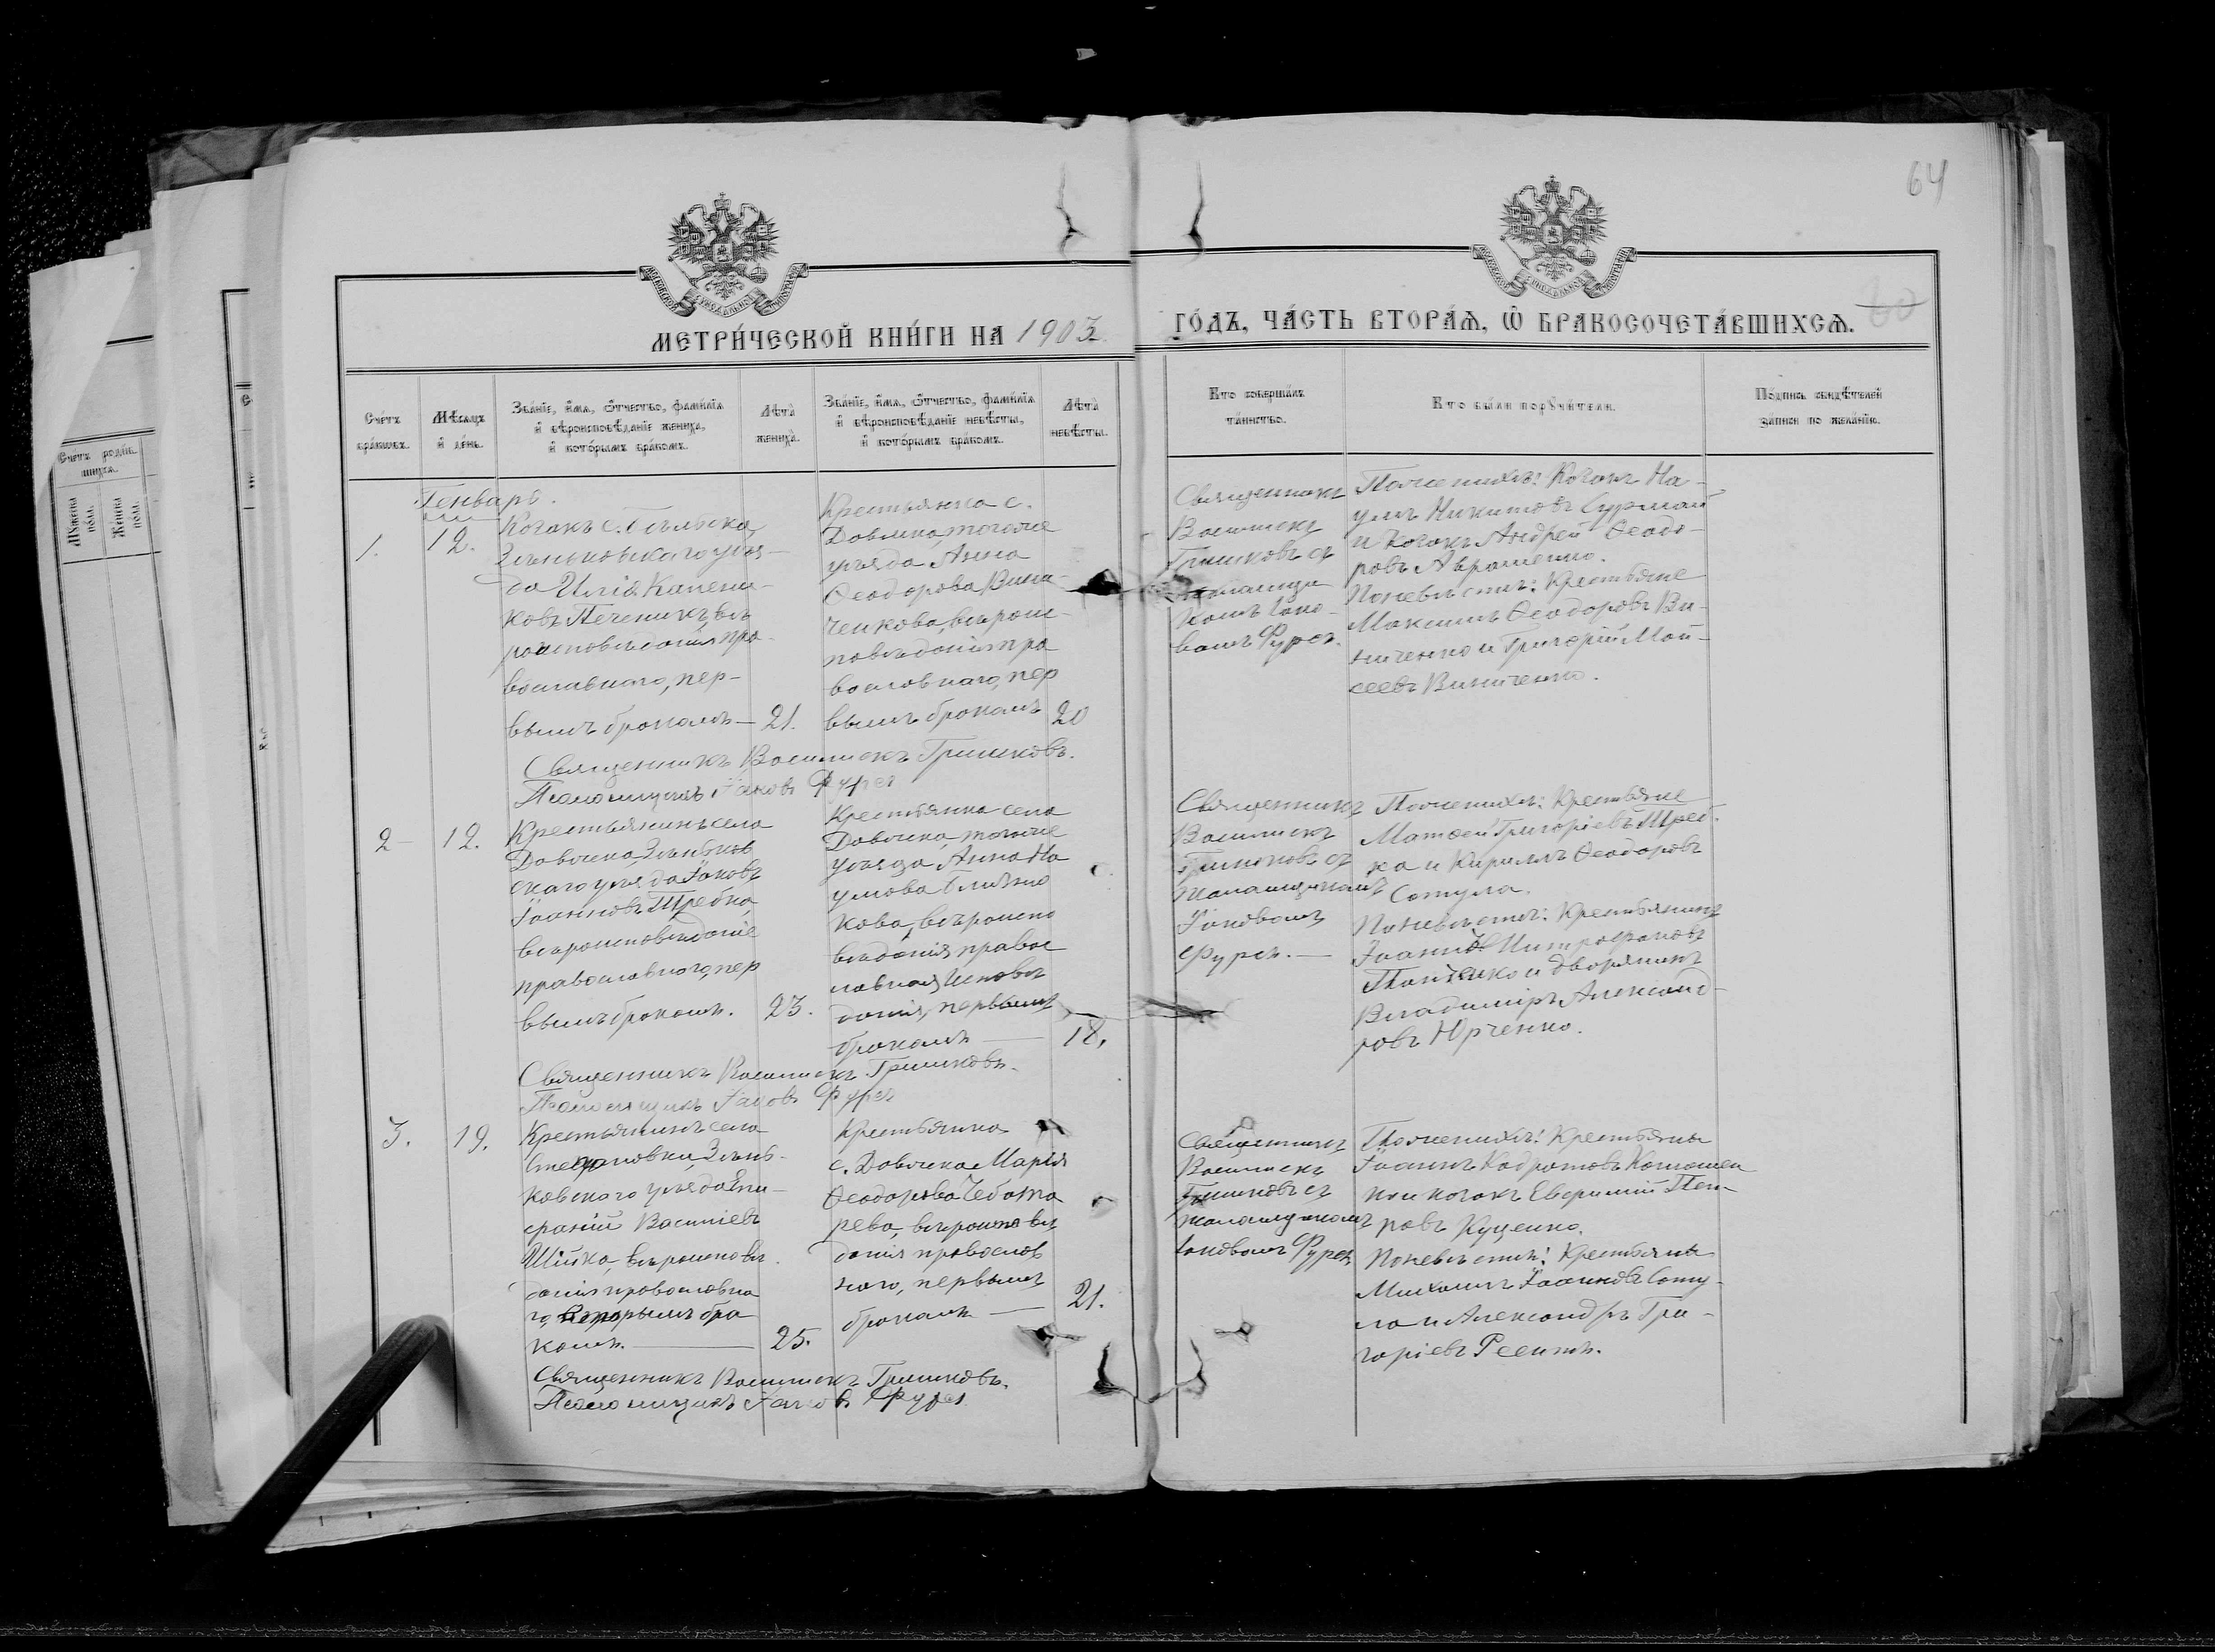 64
МЕТРИ́ЧЕСКОЙ КНИ́ГИ НА 1903
ГО́ДЪ, ЧА́СТЬ ВТОРА́Ѧ, Ѡ҆ БРАКОСОЧЕТА́ВШИХСѦ.
Сче́тъ бра́ковъ.
Мѣ́сѧцъ и҆ де́нь.
Зва́нїе, и҆́мѧ, ѻ҆́тчество, фамилїѧ
и҆ вѣроисповѣ́данїе жениха̀,
и҆ кото́рымъ бра́комъ.
Лѣта̀ жениха̀.
Зва́нїе, и҆́мѧ, ѻ҆́тчество, фамилїѧ
и҆ вѣроисповѣ́данїе невѣ́сты,
и҆ кото́рымъ бра́комъ.
Лѣта̀ невѣ́сты.
Кто̀ соверша́лъ
та́инство.
Кто̀ бы́ли порꙋчи́тели.
По́дпись свидѣ́телей
за́писи по жела́нїю.
Генварь.
1.
12.
Козакъ с. Бѣльска,
Зѣньковскаго уѣз-
да Илія
ковъ Печеникъ, вѣ
роисповѣданія пра-
вославнаго, пер-
вымъ бракомъ — 21.
Крестьянка с.
тогоже
уѣзда Анна
Ѳеодорова Вини-
ченкова, вѣроис-
повѣданія пра
вославнаго, пер
вымъ бракомъ 20
Священникъ
Василискъ
Гришковъ съ
псаломщи
комъ Іако-
вомъ Фурса.
По женихѣ: Козакъ На-
умъ Никитовъ Сурмай
и Козакъ Андрей Ѳеодо-
ровъ Авраменко.
По невѣстѣ: Крестьяне
Максимъ Ѳеодоровъ Ви-
ниченко и Григорій Мой-
сеевъ Виниченко.
Священникъ Василискъ Гришковъ.
Псаломщикъ Іаковъ Фурса
2 —
12.
Крестьянинъ села
Зѣньков
скаго уѣзда Іаковъ
Іоанновъ
вѣроисповѣданіе
православнаго, пер
вымъ бракомъ. 23.
Крестьянка села
тогоже
уѣзда, Анна На
умова
кова, вѣроиспо
вѣданія правос
лавная Исповѣ
данія, первымъ
бракомъ — 18.
Священникъ
Василискъ
Гришковъ съ
псаломщикомъ
Іаковомъ
Фурса. —
По женихѣ: Крестьяне
Матѳей Григоріевъ
ка и Кириллъ Ѳеодоровъ
Сотула.
По невѣстѣ: Крестьянинъ
Іоаннъ Митрофановъ
и дворянинъ
Владиміръ Александ-
ровъ Юрченко.
Священникъ Василискъ Гришковъ.
Псаломщикъ Іаковъ Фурса
3.
19.
Крестьянинъ села
Степановки, Зѣнь-
ковскаго уѣзда Епи-
фаній Василіевъ
Шійка, вѣроисповѣ
данія православна
го, вторымъ бра
комъ. — 25.
Крестьянка
с. Марія
Ѳеодорова Чебота
рева, вѣроисповѣ
данія православ
наго, первымъ
бракомъ — 21.
Священникъ
Василискъ
Гришковъ съ
псаломщикомъ
Іаковомъ Фурса
По женихѣ: Крестьяны
Іоаннъ
и козакъ Евфимій Пет-
ровъ Куценко.
По невѣстѣ: Крестьяны
Михаилъ Іоанновъ Соту-
ла и Александръ Гри-
горіевъ
Священникъ Василискъ Гришковъ.
Псаломщикъ Іаковъ Фурса